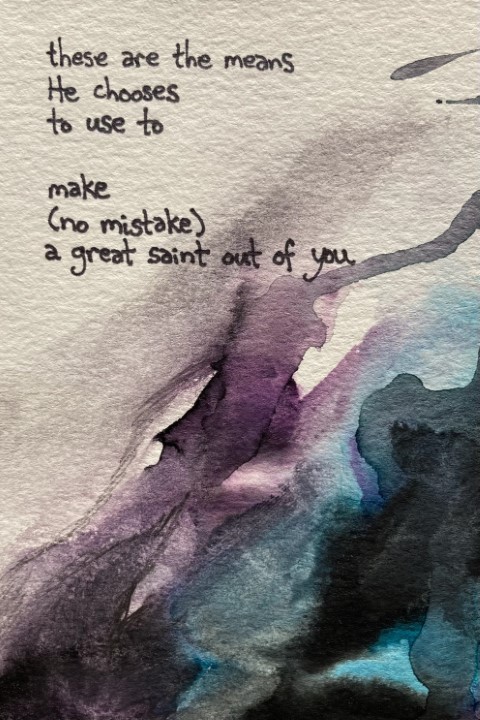 these are the means
He chooses
to use to
make
(no mistake)
a great saint out of you